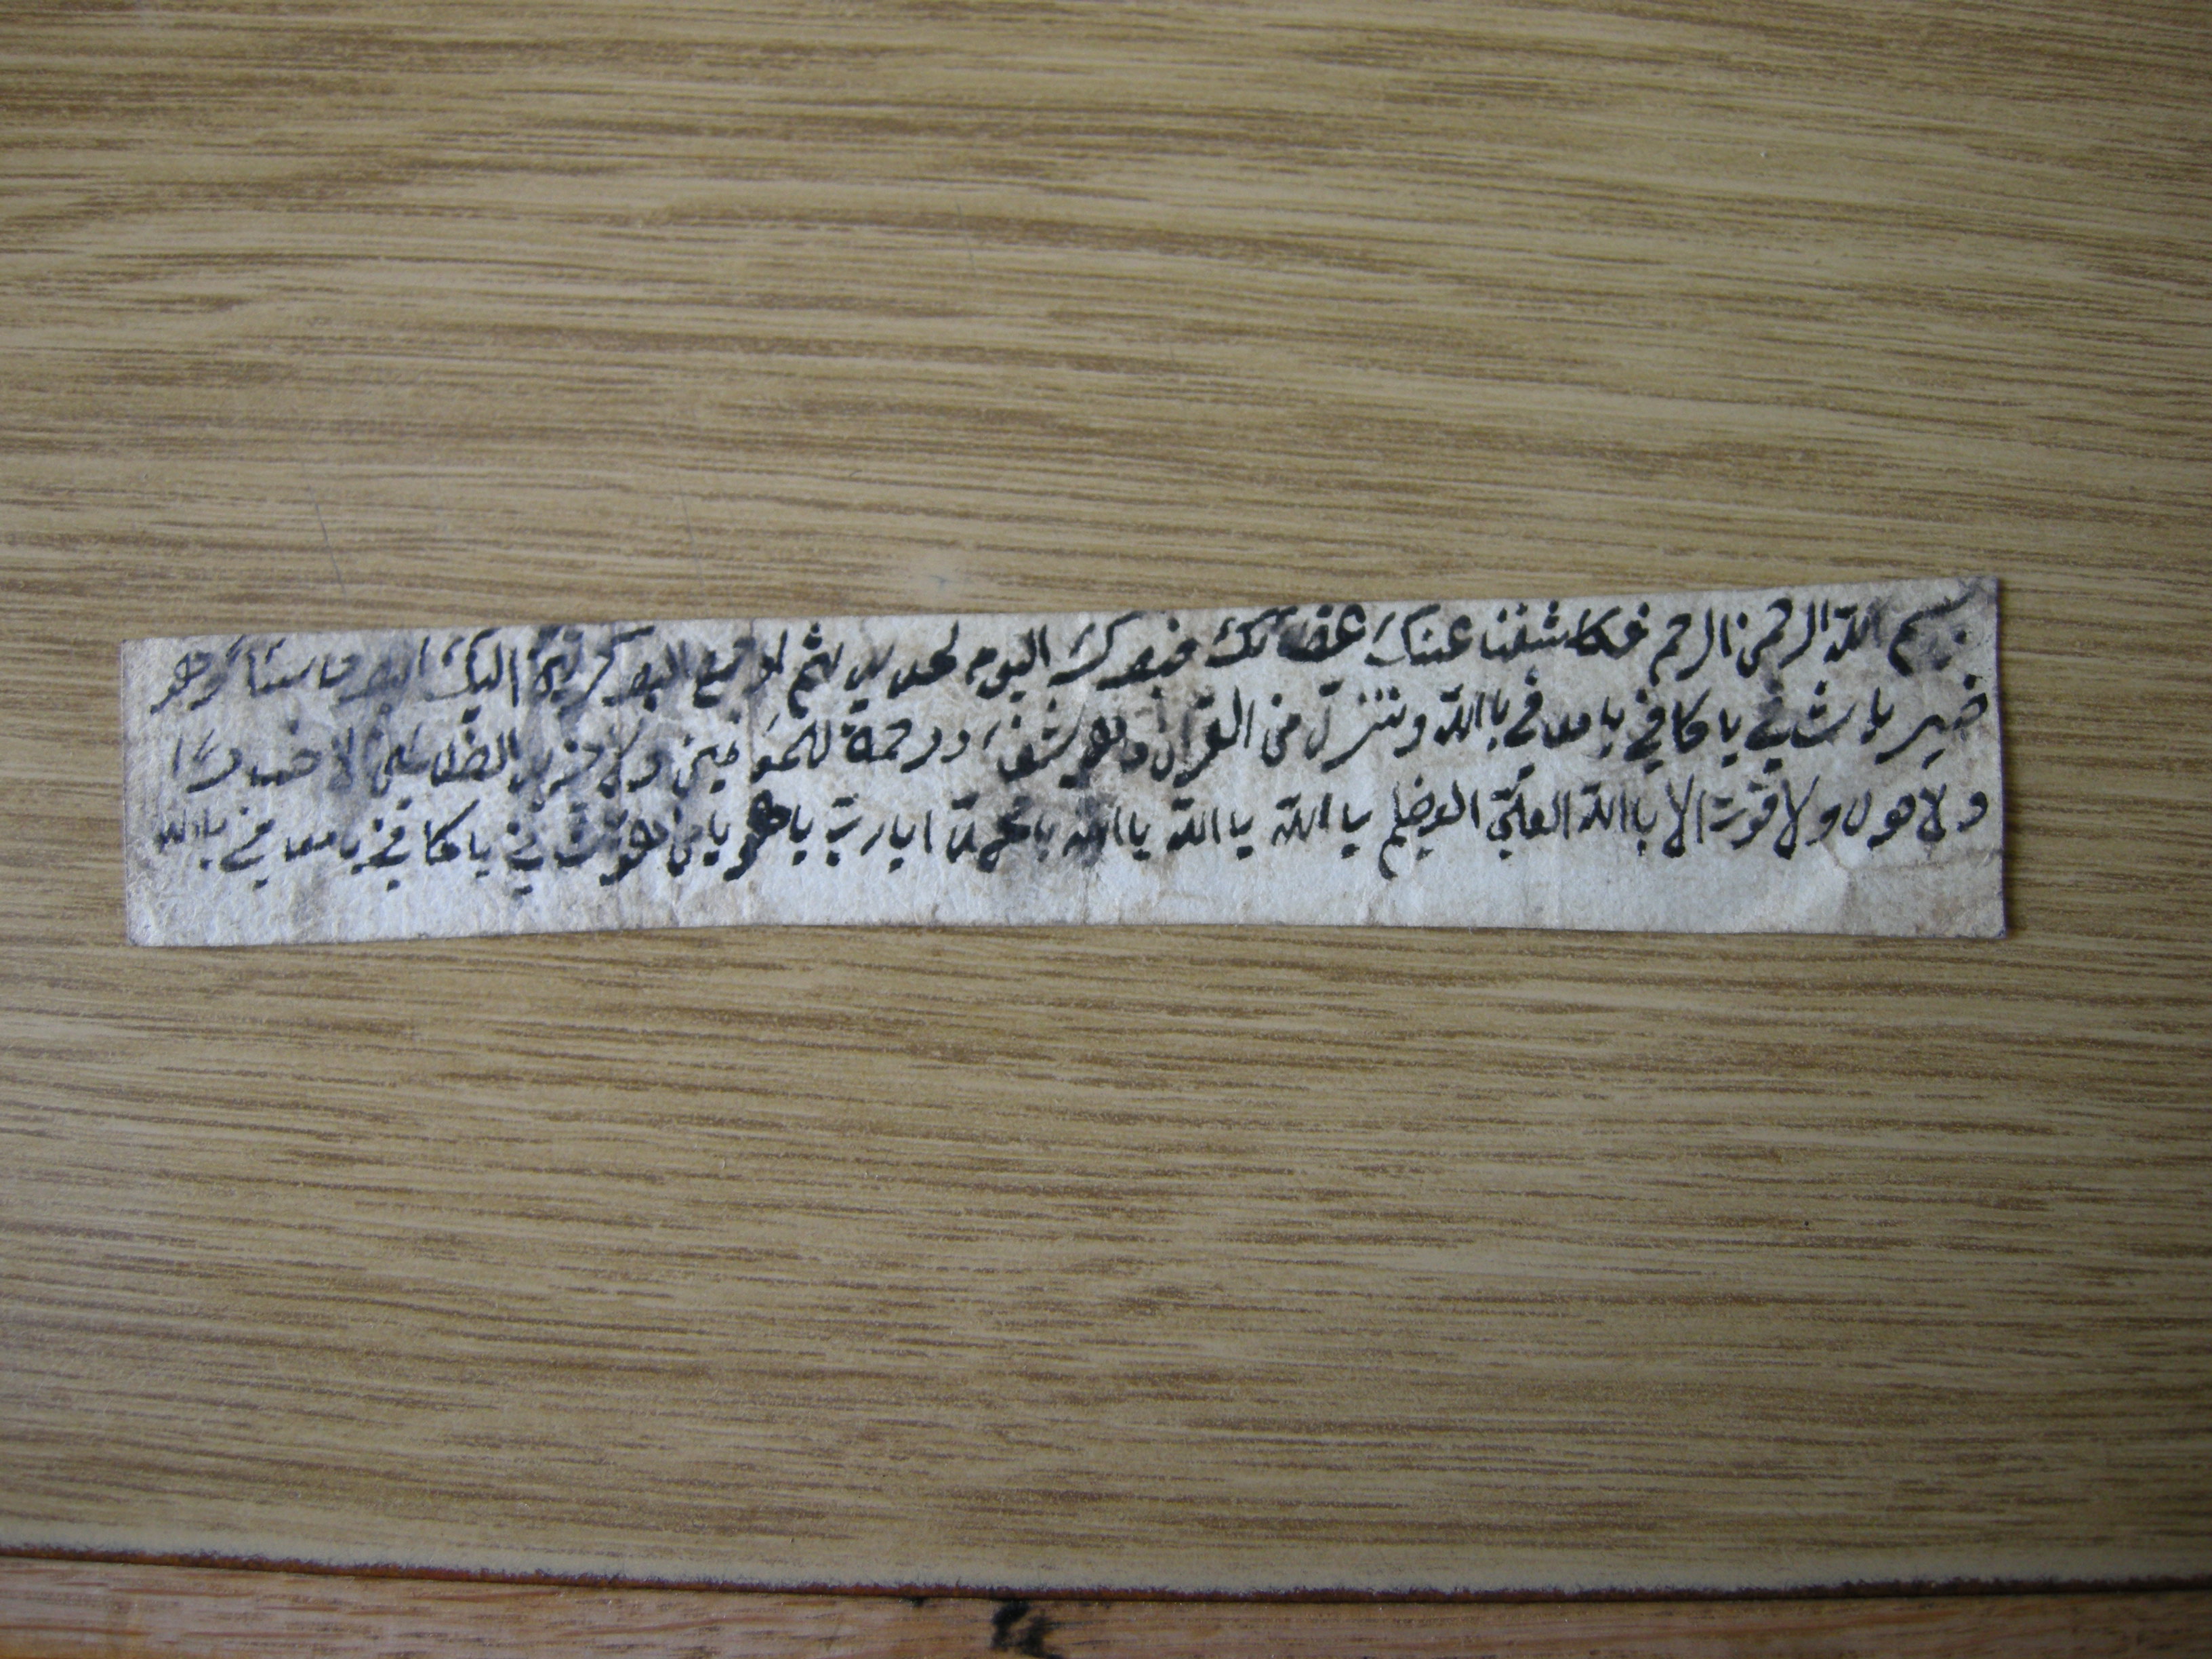 بسم الله الرحمن الرحيم فكاشفنا عنك غطائك فبصرك اليوم حديد ثم ارجع البصر كرتين اليك البصر خاسئا وهو
خير يا شافي يا كافي يا معافي يا الله وننزل من القرآن ما هو شفاء ورحمة للمؤمنين ولا يزيد الظالمين الا خسارا
ولا حول ولا قوت الا باالله العلي العظيم يا الله يا الله يا الله يا يا رب يا هو يا من هو شافي يا كافي يا معافي يا الله